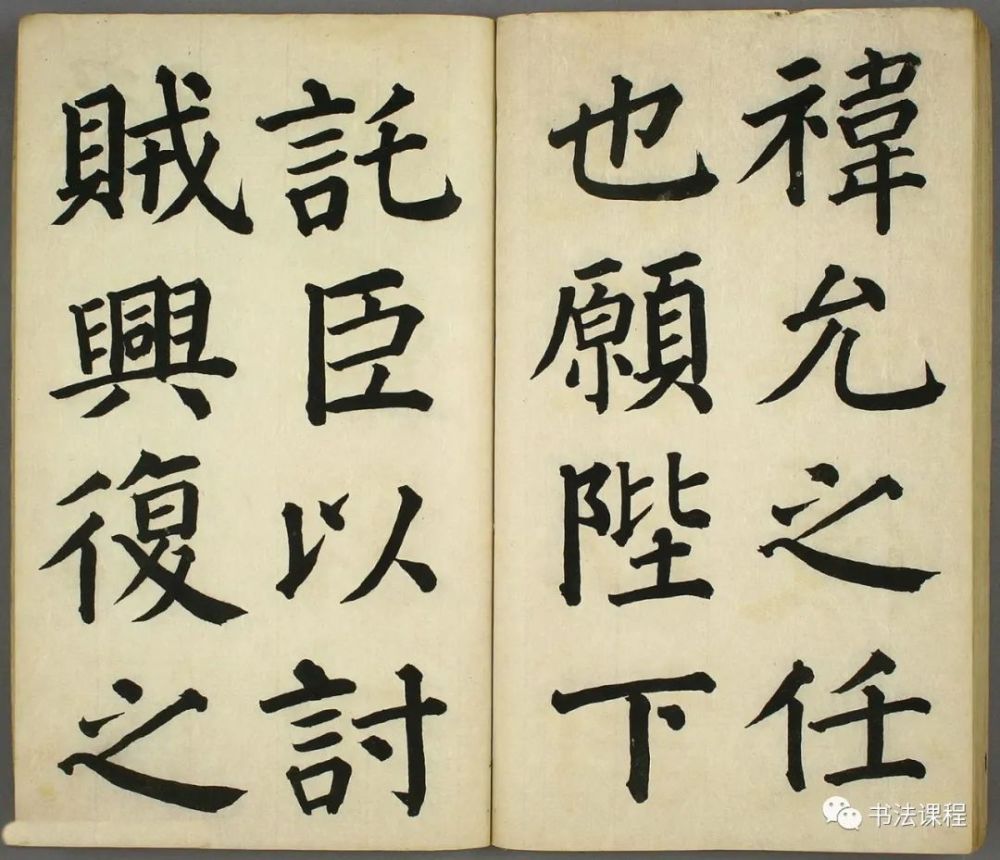 禕允之任
也願陛下
託臣以討
賊興復之
书法课程